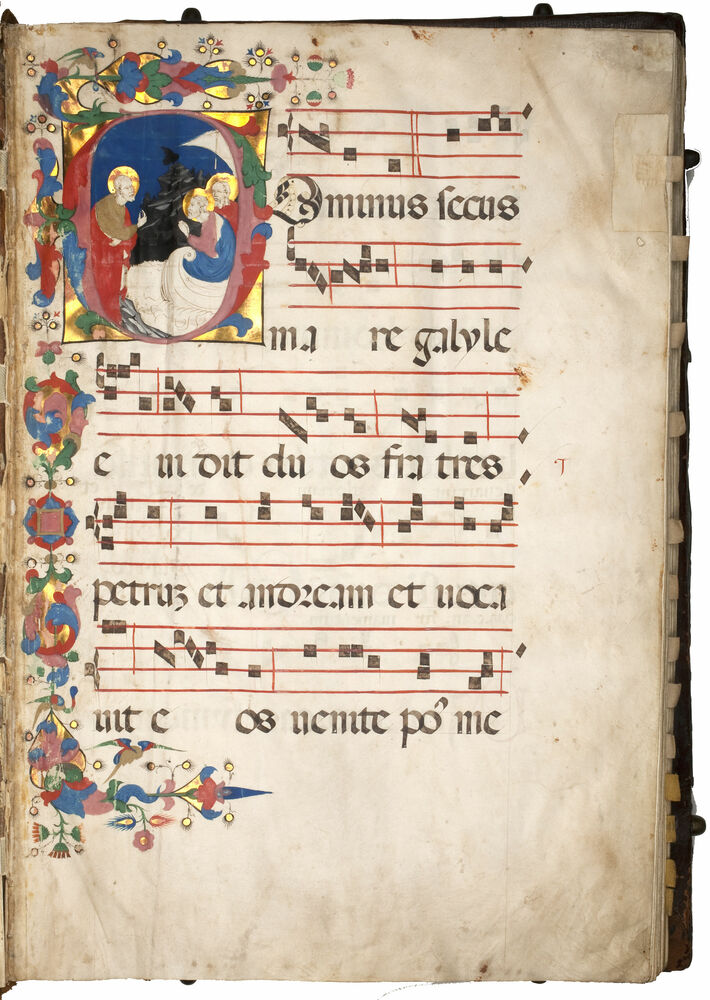 Ominus secus
ma re galyle
e in dit du os fra tres
petruz et andream et uoca
uit e os uenite po' me